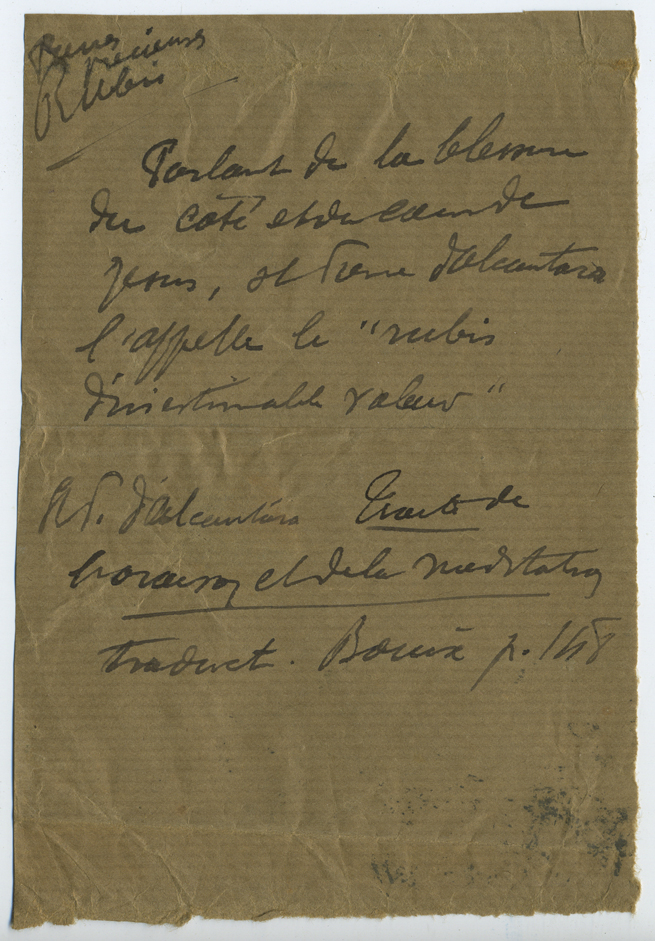 Pierres
Précieuses
Rubis
Parlant de la blessure
du côté et du cœur de
Jésus, st Pierre d'Alcantara
l'appelle le "rubis
d'inestimable valeur"
St P. d'Alcantara Traité de
l'oraison et de la méditation
traduct. Bouix p. 148